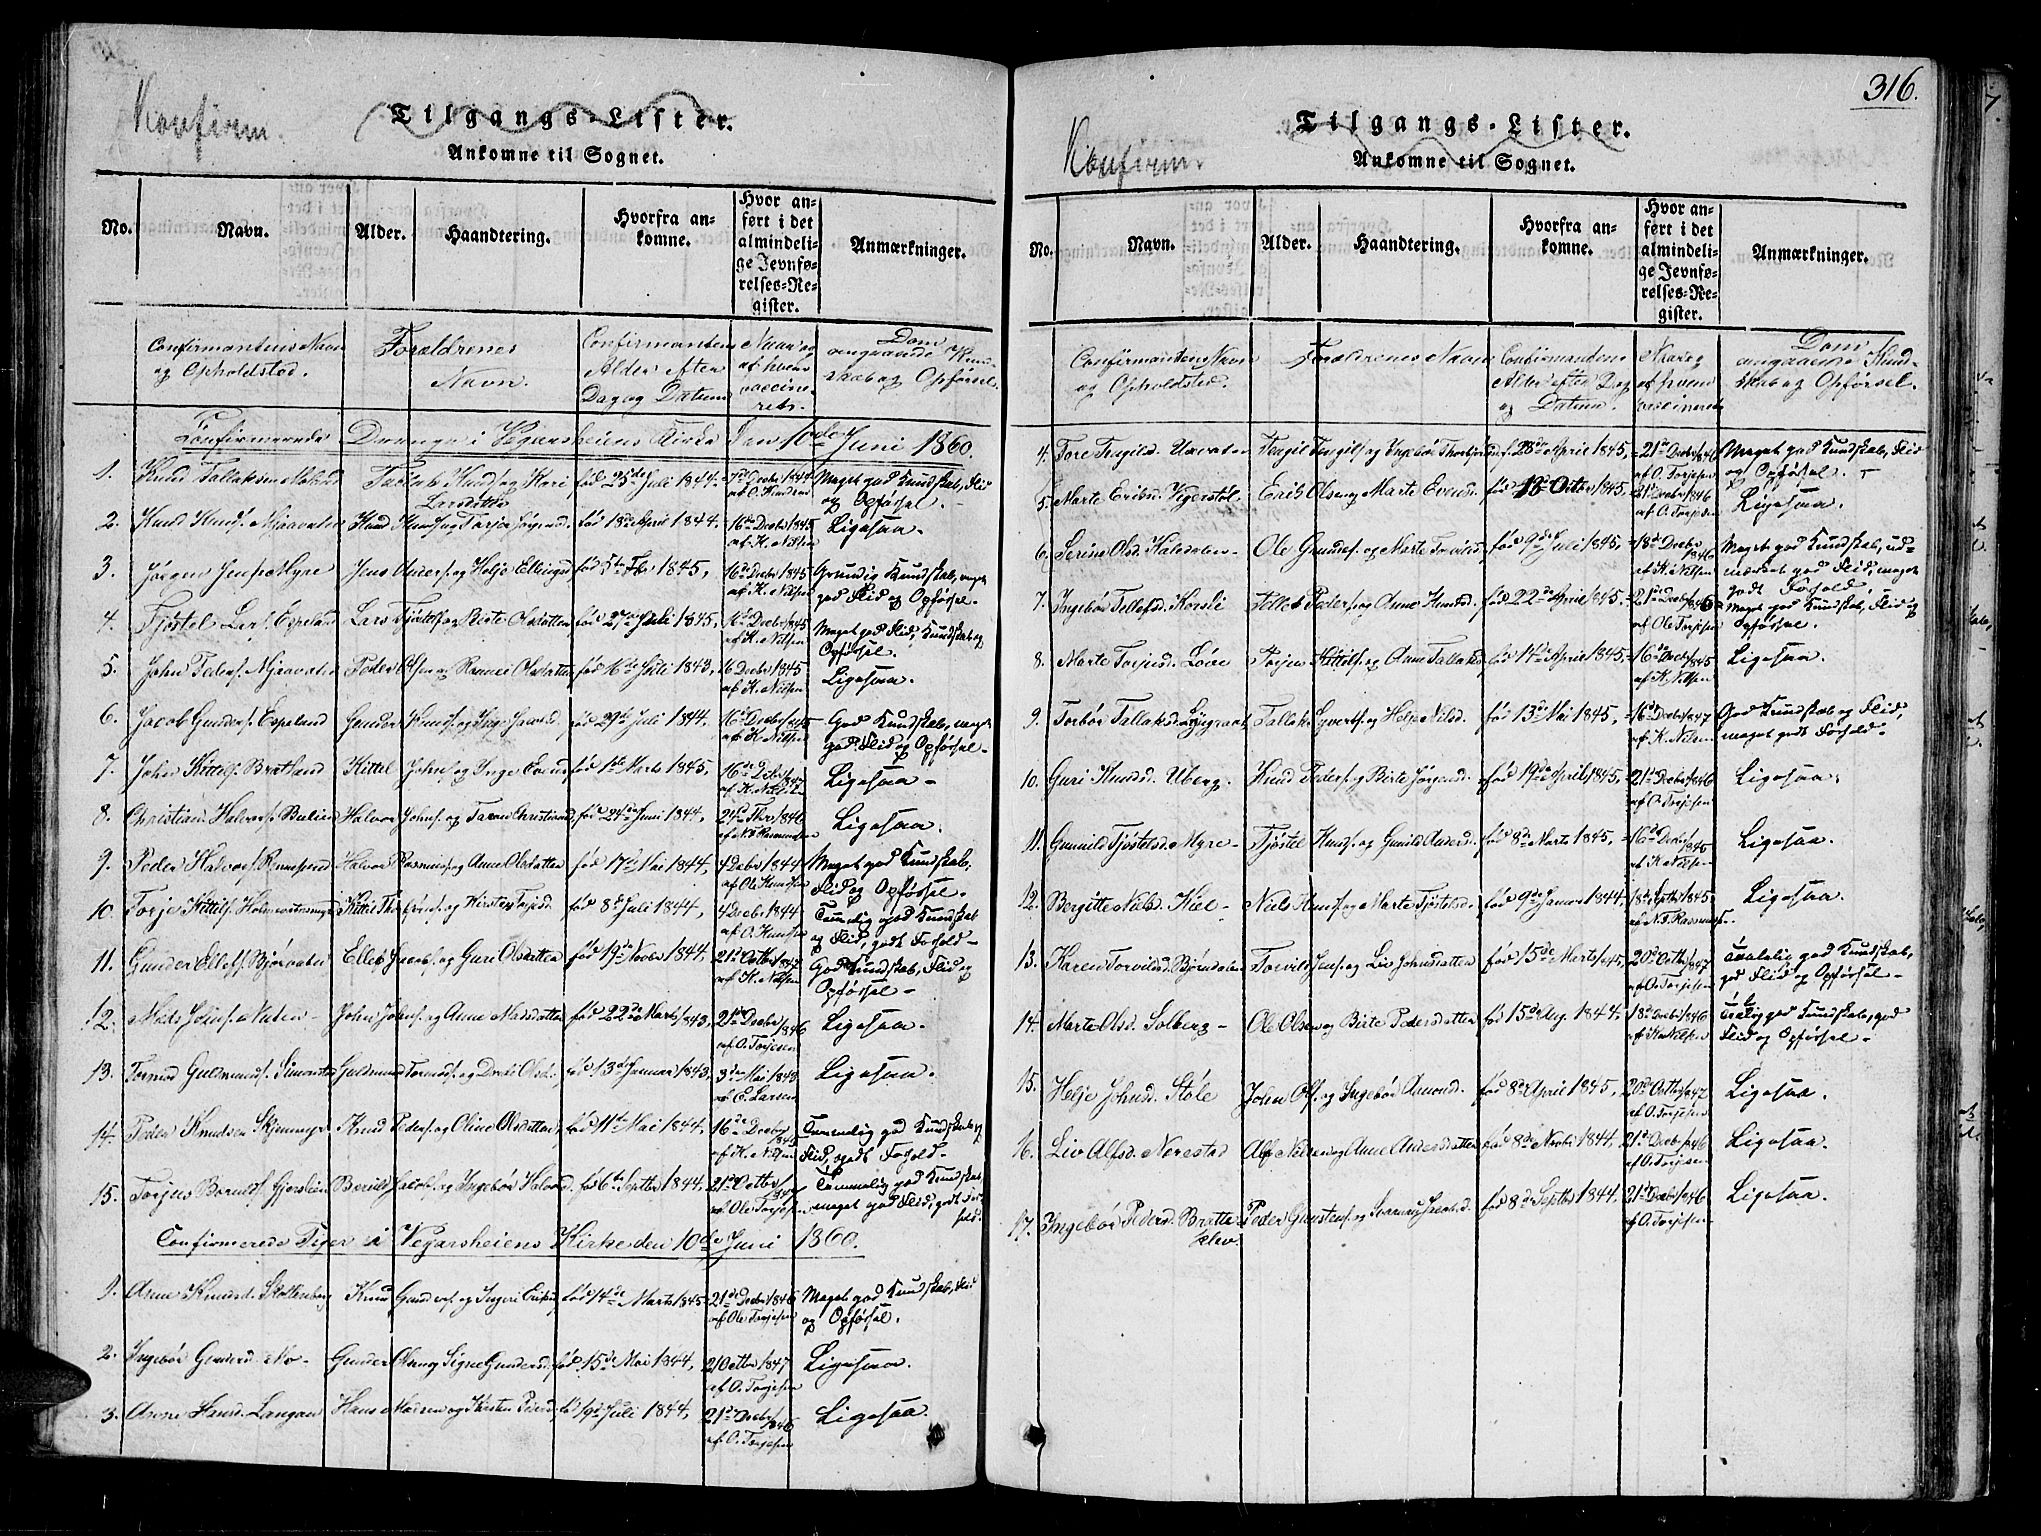 Konfirm.
Tilgangs-Lister.
Ankomne til Sognet.
No. Navn. Alder. Haandtering. Hvorfra an-
komne. Hvor an-
ført i det
almindeli-
ge Jevnfø-
relses-Re-
gister. Anmærkninger.
Confirmantens Navn
og Opholdsted. Forældrenes
Navn. Confirmantens
Alder efter
Dag og Datum Naar og
af hvem
vaccine-
rets. Dom
angaaende Kund-
skab og Opførsel.
Confirmerede Drenge i Vegarsheiens Kirke den 10de Juni 1860.
1. Knud Tallaksen Tallak Knuds. og Kari Larsdatter født 25de Juli 1844. 7de Decbr 1844 af O. Knudsen Meget god Kundskab, Flid og Opførsel.
2. Knud Knuds. Mjaavatn Knud Knuds. og Tarjer født 18de April 1844. 16de Decbr 1845 af K. Nilsen Ligesaa.
3. Jørgen Jens. Myre Jens Anders. og Helje Ellings. født 5te 1845, 16de Decbr 1845 af K. Nilsen Grundig Kundskab, meget god Flid og Opførsel.
4. Tjøstel Lars. Espeland Lars Tjøstels. og Birte Olsdatter født 27de Juli 1845, 16de Decbr 1845 af K. Nilsen Meget god Flid, Kundskab og Opførsel.
5. John Peders. Mjaavatn Peder Olsen og Olsdatter født 16de Juli 1843, 16 Decbr 1845 af K. Nilsen Ligesaa.
6. Jacob Gunders. Espeland Gunder Knuds. og født 29de Juli 1844. 16de Decbr 1845 af K. Nilsen God Kundskab, meget god Flid og Opførsel.
7. John Kittils. Bratland Kittel Johns. og Inge født 1ste Marts 1845, 16de Decbr 1847 af K. Nilsen Ligesaa
8. Christian Halvors. Halvor Johns. og Taran Christians. født 24de Juni 1844, 24de 1846 af N. T. Rasmussen Ligesaa.
9. Peder Halvors. Halvor Rasmus. og Anne Olsdatter født 17de Mai 1844, 4 Decbr 1844 af Ole Knudsen Meget god Kundskab, Flid og Opførsel.
10. Torje Kittils. Kittil og Kirsten født 8de Juli 1844, 4 Decbr 1844 af O. Knudsen Temmelig god Kundskab og Flid, godt Forhold
11. Gunder Ellefs. Bjørvatn Ellef Jacobs. og Guri Olsdatter født 19de Novbr 1844, 21de Octbr 1847 af K. Nilsen God Kundskab, Flid og Opførsel
12. Mads Johns. John Johns. og Anne Madsdatter født 22de Marts 1843, 21de Decbr 1846 af O. Torjesen Ligesaa.
13. Tarmod Guldmunds. Simonstad Guldmund Tormods. og født 13de Januar 1843, 3de Mai 1843 af E. Larsen Ligesaa.
14. Peder Knudsen Knud Peders. og Oline Olsdatter født 11te Mai 1844, 16de Decbr 1845 af K. Nilsen Temmelig god Kundskab, Flid, godt Forhold.
15. Torjus Bernts. Jacobs. og Ingebør født 6te Septbr 1844, 21de Octbr 1847 af Ole Torjesen Temmelig god Kundskab, meget god Flid, godt Forhold.
Confirmerede Piger i Vegarsheiens Kirke den 10de Juni 1860.
1. Anne Knudsd. Skottenberg Knud Gunders. og født 14de Marts 1845 21de Decbr 1846 af Ole Torjesen Meget god Kundskab, Flid og Opførsel.
2. Ingebør Gundersd. Mo Gunder Olsen og Signe Gundersd. født 15de Mai 1844, 21 Octbr 1847 af O. Torjesen Ligesaa.
3. Anne Hansd. Langan Hans Madsen og Kirsten født 19de Juli 1844, 21de Decbr 1846 af O. Torjesen Ligesaa.
316.
Konfirm.
Tilgangs-Lister.
Ankomne til Sognet.
No. Navn. Alder. Haandtering. Hvorfra an-
komne. Hvor an-
ført i det
almindeli-
ge Jevnfø-
relses-Re-
gister. Anmærkninger.
Confirmandens Navn
og Opholdsted. Forældrenes Navn Confirmandens
Alder efter Dag
og Datum. Naar og
af hvem
vaccineret Dom
angaaende Kund-
skab og Opførsel.
4. Tore Tergilsd. Tergil Tergils. og Ingebør født 28de April 1845, 21de Decbr 1846 af O. Torjesen Meget god Kundskab, Flid og Opførsel.
5. Marte Eriksd. Vegerstøl Erik Olsen og Marte Evensd. født 18de Octbr 1845, 21de Decbr 1846 af O. Torjesen Ligesaa.
6. Serine Olsd. Ole Gundes. og Marte født 9de Juli 1845, 18de Decbr 1846 af K. Nilsen Meget god Kundskab, ud-
mærket god Flid, meget godt Forhold.
7. Ingebør Tellefsd. Tellef Peders. og Anne Knudsd. født 22de April 1845. 21de Decbr 1846 af Ole Torjesen Meget god Kundskab, Flid og Opførsel.
8. Marte Torjusd. Løve Torjus Kittils. og Anne Tallaksd. født 14de April 1845. 16de Decbr 1845 af K. Nilsen Ligesaa.
9. Torbør Tallaksd. Tallak Syverts. og Helje Nilsd. født 13de Mai 1845, 16de Decbr 1847 af K. Nilsen God Kundskab og Flid, meget godt Forhold
10. Guri Knudsd. Uberg. Knud Peders. og Birte Jørgensd. født 19de April 1845. 21de Decbr 1846 af O. Torjesen Ligesaa.
11. Gunnild Tjøstelsd. Myre Tjøstel Knuds. og Gunild Andersd. født 8de Marts 1845, 16de Decbr 1845 af K. Nilsen Ligesaa.
12. Bergitte Nilsd. Kile Niels Knuds. og Marte Tjøstelsd. født 9de Januar 1844, 18de Septbr 1845 af N. T. Rasmussen. Ligesaa.
13. Karen Torvildsd. Bjørndalen Torvild Jens. og Liv Johnsdatter født 15de Marts 1845, 20de Octbr 1847 af O. Torjesen god Kundskab, god Flid og Opførsel
14. Marte Olsd. Solberg Ole Olsen og Birte Pedersdatter født 15de Aug. 1844, 18de Decbr 1846 af K. Nilsen god Kundskab, god Flid og Opførsel
15. Helje Johnsd. Støle John Ols. og Ingebør Amundsd. født 8de April 1845, 20de Octbr 1847 af O. Torjesen Ligesaa.
16. Liv Alfsd. Nerestad Alf Nilsen og Anne Andersdatter født 8de Novbr 1844, 21de Decbr 1846 af O. Torjesen Ligesaa.
17. Ingebør Pedersd. Bratte-
klev. Peder Gunstens. og født 8de Septbr 1844. 21de Decbr 1846 af O. Torjesen Ligesaa.